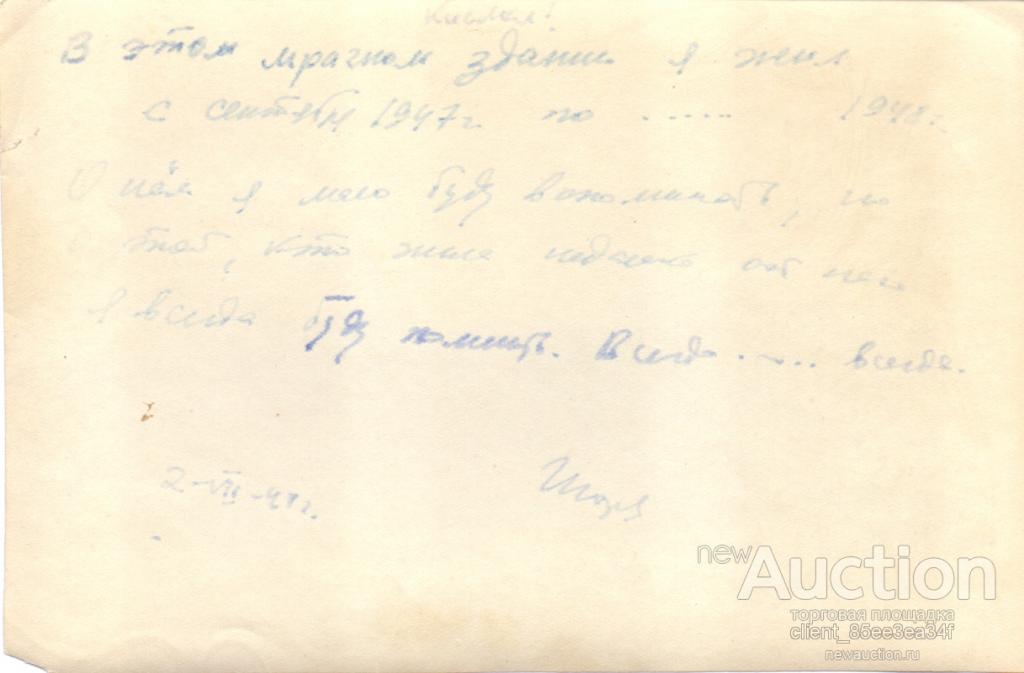 В этом мрачном здании я жил
с сентября 1947г. по ...... 1948г.
О нём я мало буду вспоминать, но
о той, кто жила недалеко от него
я всегда буду помнить. Всегда ...... всегда.
2-VII-48г.
newAuction
торговая площадка
client_85ee3ea34f
newauction.ru